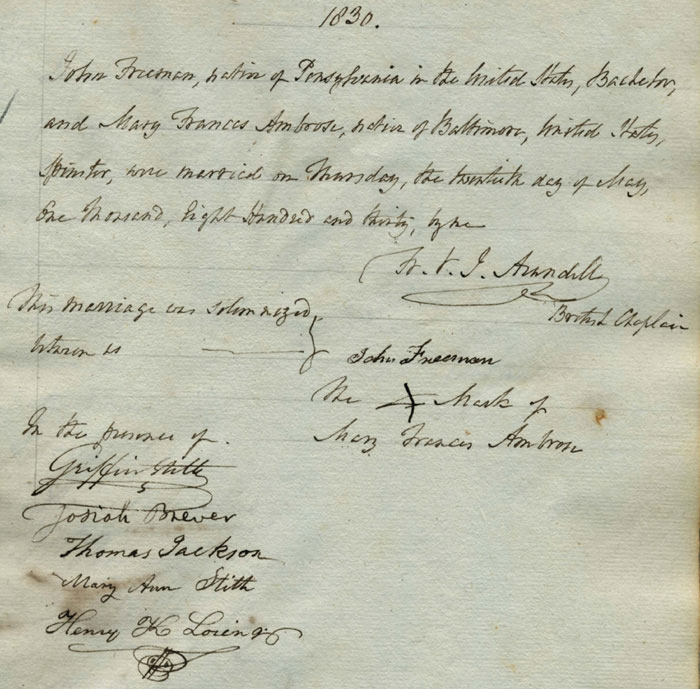 1830.
John Freeman, native of Pensylvania in the United States, Bachelor,
and Mary Frances Ambrose, native of Baltimore, United States,
Spinster, were married on Thursday, the twentieth day of May,
One Thousand, Eight Hundred and thirty, by me
F. V. J. Arundell
British Chaplain
This marriage was solemnized
between us
John Freeman
The X Mark of
Mary Frances Ambrose
In the presence of.
Griffin Stith
Josiah Brewer
Thomas Jackson
Mary Ann Stith
Henry K Loring